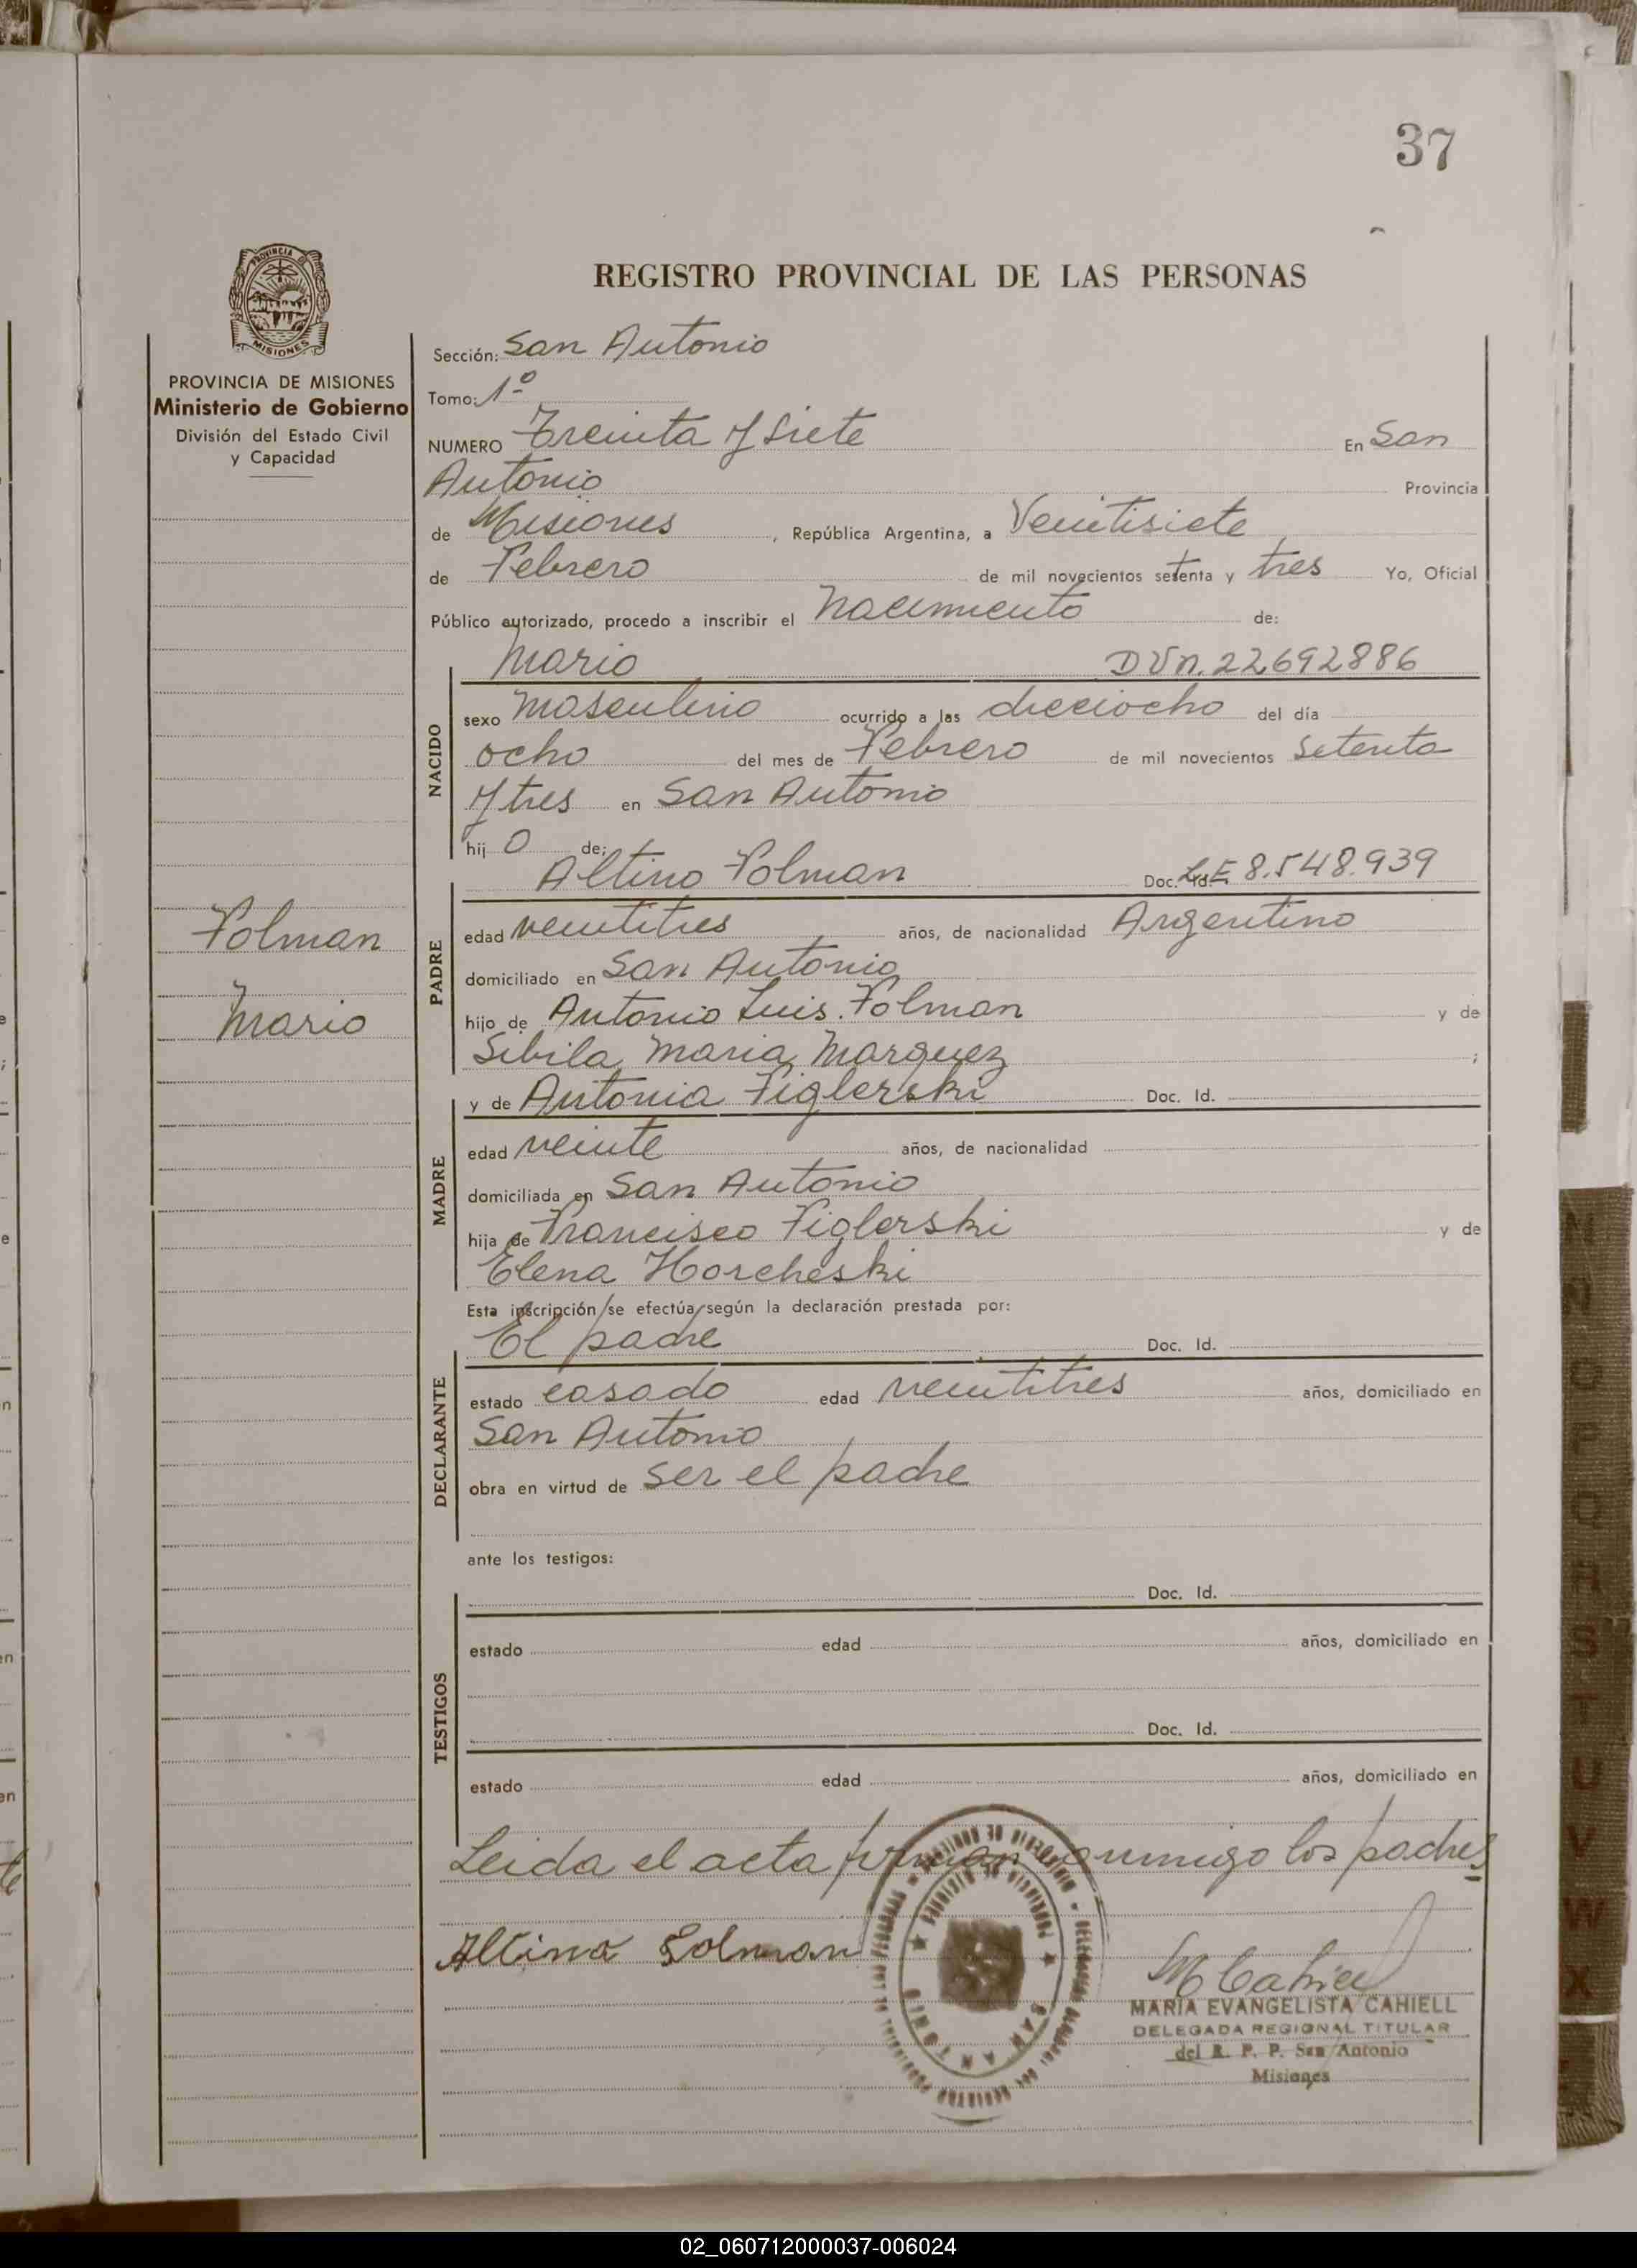 37
PROVINCIA DE MISIONES
Ministerio de Gobierno
División del Estado Civil
y Capacidad
REGISTRO PROVINCIAL DE LAS PERSONAS
Sección: San Antonio
Tomo: 1º
NUMERO Treinta y Siete En San
Antonio Provincia
de Misiones, República Argentina, a Veintisiete
de Febrero de mil novecientos setenta y tres Yo, Oficial
Público autorizado, procedo a inscribir el Nacimiento de:
Mario DUN. 22692886
NACIDO
sexo Masculino ocurrido a las dieciocho del día
ocho del mes de Febrero de mil novecientos Setenta
y tres en San Antonio
hij o de:
Altino Folman Doc. Id. L.E 8.548.939
Folman
Mario
PADRE
edad veintitres años, de nacionalidad Argentino
domiciliado en San Antonio
hijo de Antonio Luis Folman y de
Sibila Maria Marquez ;
y de Antonia Figlerski Doc. Id.
MADRE
edad veinte años, de nacionalidad
domiciliada en San Antonio
hija de Francisco Figlerski y de
Elena Horcheski
Esta inscripción se efectúa según la declaración prestada por:
El padre Doc. Id.
DECLARANTE
estado casado edad veintitres años, domiciliado en
San Antonio
obra en virtud de ser el padre
ante los testigos:
Doc. Id.
TESTIGOS
estado edad años, domiciliado en
Doc. Id.
estado edad años, domiciliado en
Leida el acta firman conmigo los padres
Altino Folman
M Cahiell
MARIA EVANGELISTA CAHIELL
DELEGADA REGIONAL TITULAR
del R. P. P. San Antonio
Misiones
SAN ANTONIO
M
N
O
P
Q
R
S
T
U
V
W
X
02_060712000037-006024